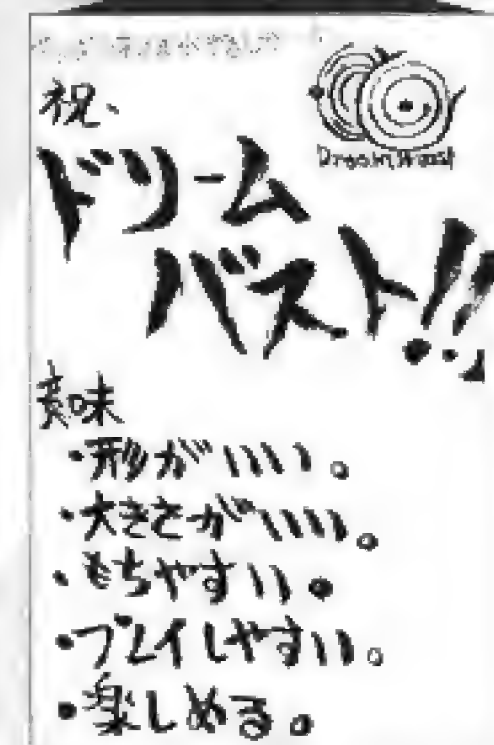 祝、
Dream Bust
ドリーム
バスト!!
意味
・形がいい。
・大きさがいい。
・もちやすい。
・プレイしやすい。
・楽しめる。